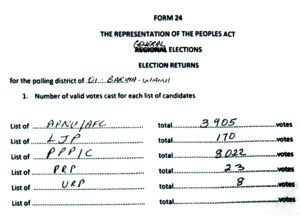 FORM 24
THE REPRESENTATION OF THE PEOPLES ACT
GENERAL
REGIONAL ELECTIONS
ELECTION RETURNS
for the polling district of 01 - BARIMA - WAINI
1. Number of valid votes cast for each list of candidates
List of APNU/AFC total 3905 votes
List of LJP total 170 votes
List of PPP/C total 8022 votes
List of PRP total 23 votes
List of URP total 8 votes
List of total votes